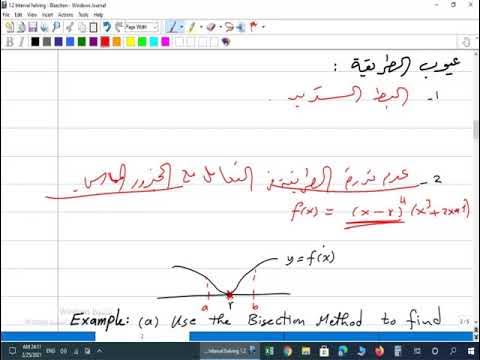 1.2 Interval Solving - Bisection - Windows Journal
File Edit View Insert Actions Tools Help
Page Width
عيوب الطريقة :
1- البطء الشديد
2- عدم قدرة الطريقة التعامل مع الجذور
f(x) = (x-r)⁴ (x³+2x+1)
y=f(x)
a r b
Example: (a) Use the Bisection Method to find
2/5
... Interval Solving 1.2
ENG